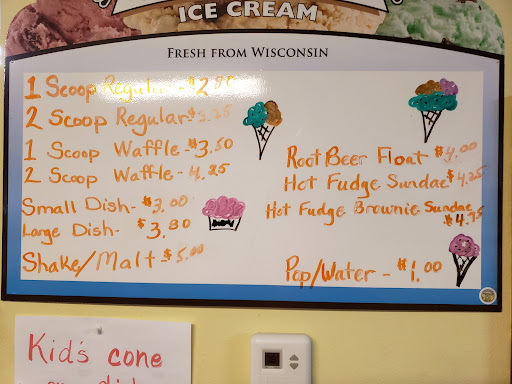 ICE CREAM
FRESH FROM WISCONSIN
1 Scoop Regular -
2 Scoop Regular
1 Scoop Waffle - $3.50
2 Scoop Waffle - 4.25
Small Dish - $3.00
Large Dish - $3.80
Shake/Malt $5.00
Root Beer Float $4.00
Hot Fudge Sundae $4.25
Hot Fudge Brownie Sundae
$4.75
Pop/Water - $1.00
Kid's cone